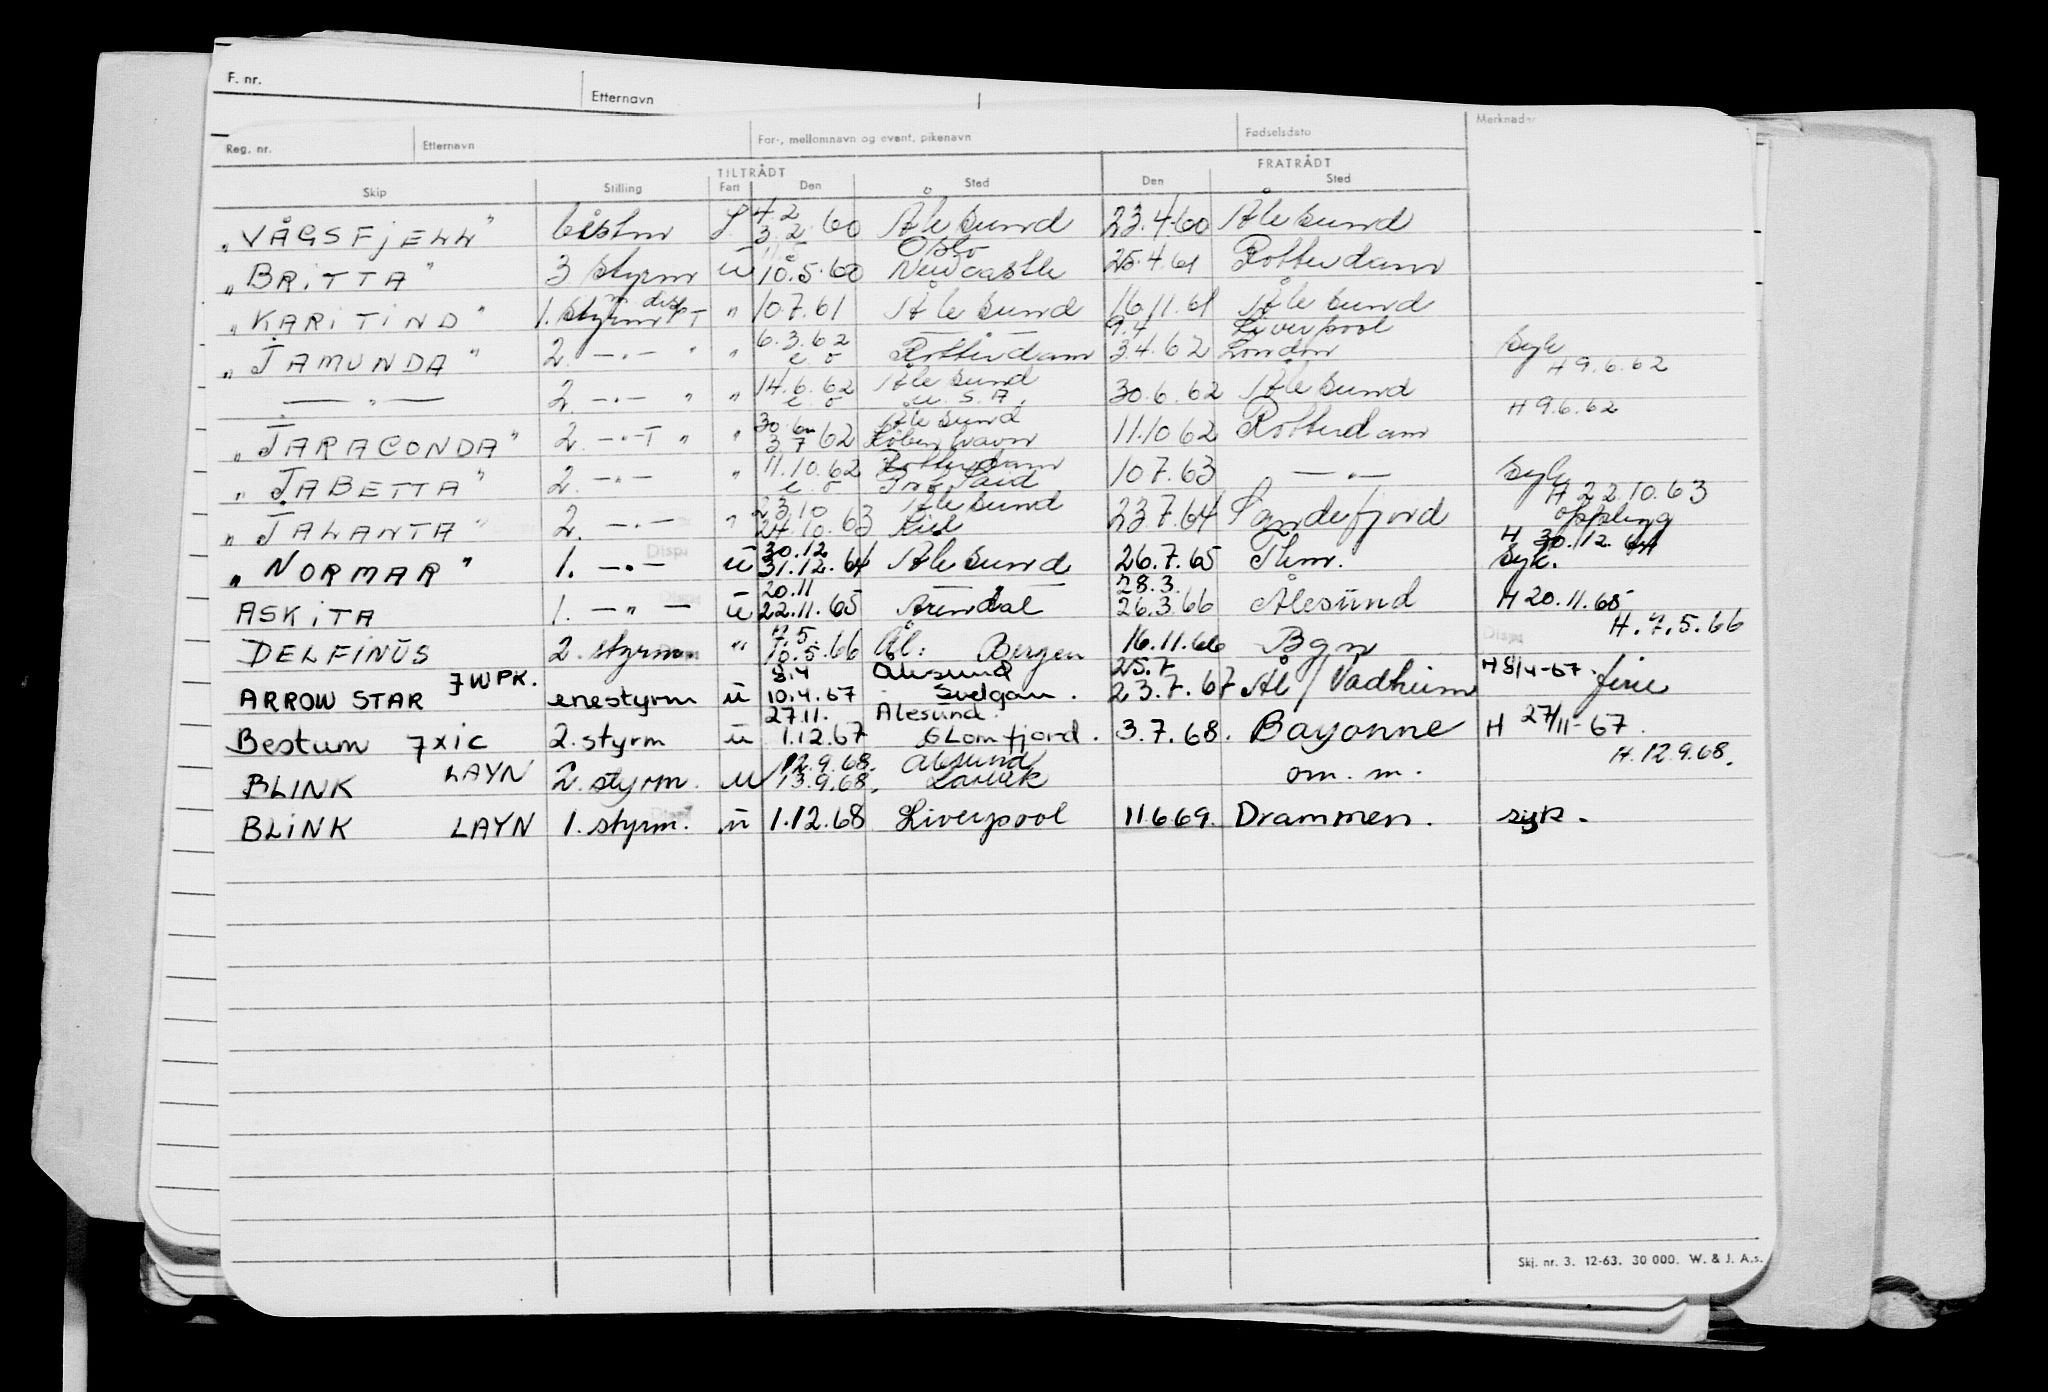 F. nr.
Etternavn
Reg. nr. Etternavn For-, mellomnavn og event. pikenavn Fødselsdato Merknader
TILTRÅDT FRATRÅDT
Skip Stilling Fart Den Sted Den Sted
4.2
„VÅGSFJELL" båtsm 3.2.60 Ålesund 23.4.60 Ålesund
Oslo
„BRITTA" 3 styrm u 10.5.60 Newcastle 25.4.61 Rotterdam
m disp
„KARITIND" 1. styrm T „ 10.7.61 Ålesund 16.11.61 Ålesund
6.3.62 — „ — 9.4 Liverpool
„JAMUNDA" 2. —„— „ „ e. o Rotterdam 3.4.62 London syk
H 9.6.62
14.6.62 Ålesund
— „ — 2 —„— „ „ e o U.S.A. 30.6.62 Ålesund H 9.6.62
30.6 Ålesund
„JARACONDA" 2. —„— T „ „ 3 7 62 København 11.10 62 Rotterdam
11.10.62 Rotterdam
„JABETTA" 2. —„— „ e. o Port Said 10 7.63 — „ — syk
H 22.10.63
23.10 Ålesund
„JALANTA" 2. —„— „ 24.10.63 Kiel 23.7.64 Sandefjord oppsing
H 30.12.64
30.12 Disp
„NORMAR" 1. —„— u 31.12.64 Ålesund 26.7.65 Thm. syk.
20.11 — — 28.3.
ASKITA 1. — „ — u 22.11.65 Arendal 26.3.66 Ålesund H 20.11.65
H. 7.5.66
7.5.
DELFINUS 2. styrm. „ 10.5.66 Ål: Bergen 16.11.66 Bgn Disp
8.4 Ålesund 25.7
ARROW STAR JWPK. enestyrm u 10.4.67 Svelgen. 23.7.67 Ål/Vadheim H 8/4-67. ferie
27.11. Ålesund.
Bestum JXIC 2. styrm u 1.12.67 Glomfjord. 3.7.68. Bayonne H 27/11-67.
H. 12.9.68.
12.9.68. Ålesund
BLINK LAYN 2. styrm. u 13.9.68. Larvik om. m.
BLINK LAYN 1. styrm. u 1.12.68 Liverpool 11.6 69. Drammen. syk.
Skj. nr. 3. 12-63. 30 000. W. & J. A.s.